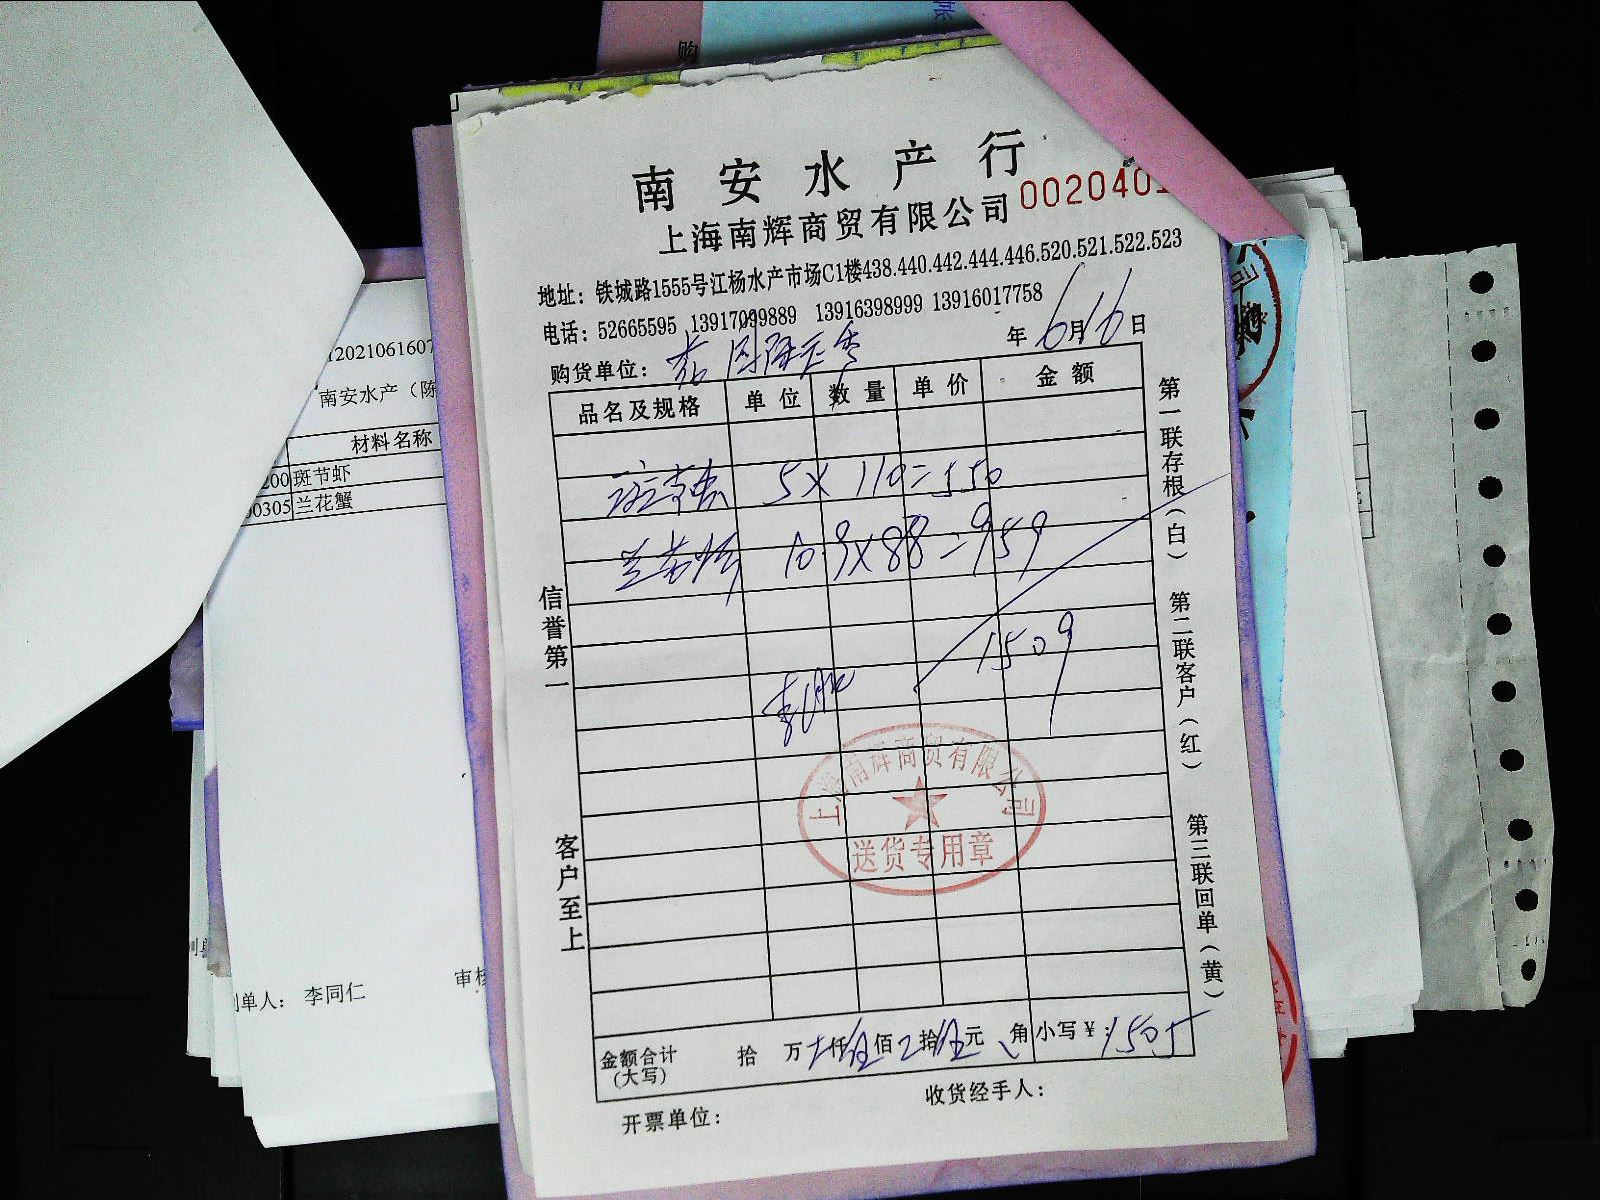 购
帐
南安水产行
上海南辉商贸有限公司 002040
地址：铁城路1555号江杨水产市场C1楼438.440.442.444.446.520.521.522.523
电话：52665595 13917099889 13916398999 13916017758
购货单位： 年 6月16日
品名及规格 单位 数量 单价 金额
斑节虾 5×110=550
兰花蟹 10.9×88=959
1509
上海南辉商贸有限公司
送货专用章
金额合计（大写） 拾 万 仟伍佰 拾伍元 角 小写￥：1505
收货经手人：
开票单位：
信誉第一
客户至上
第一联存根（白） 第二联客户（红） 第三联回单（黄）
1202106160
南安水产（陈
材料名称
200 斑节虾
00305 兰花蟹
单人： 李同仁
审核
司